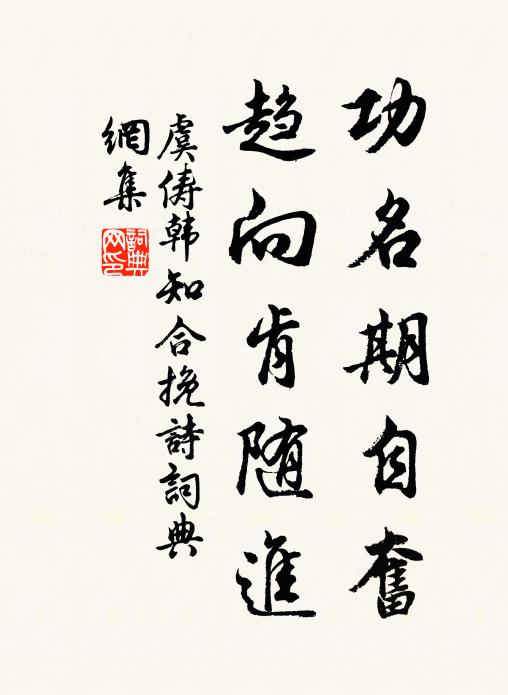 功名期自奮
趋向肯随進
虞俦韩知合挽詩詞典
網集
詞典網印